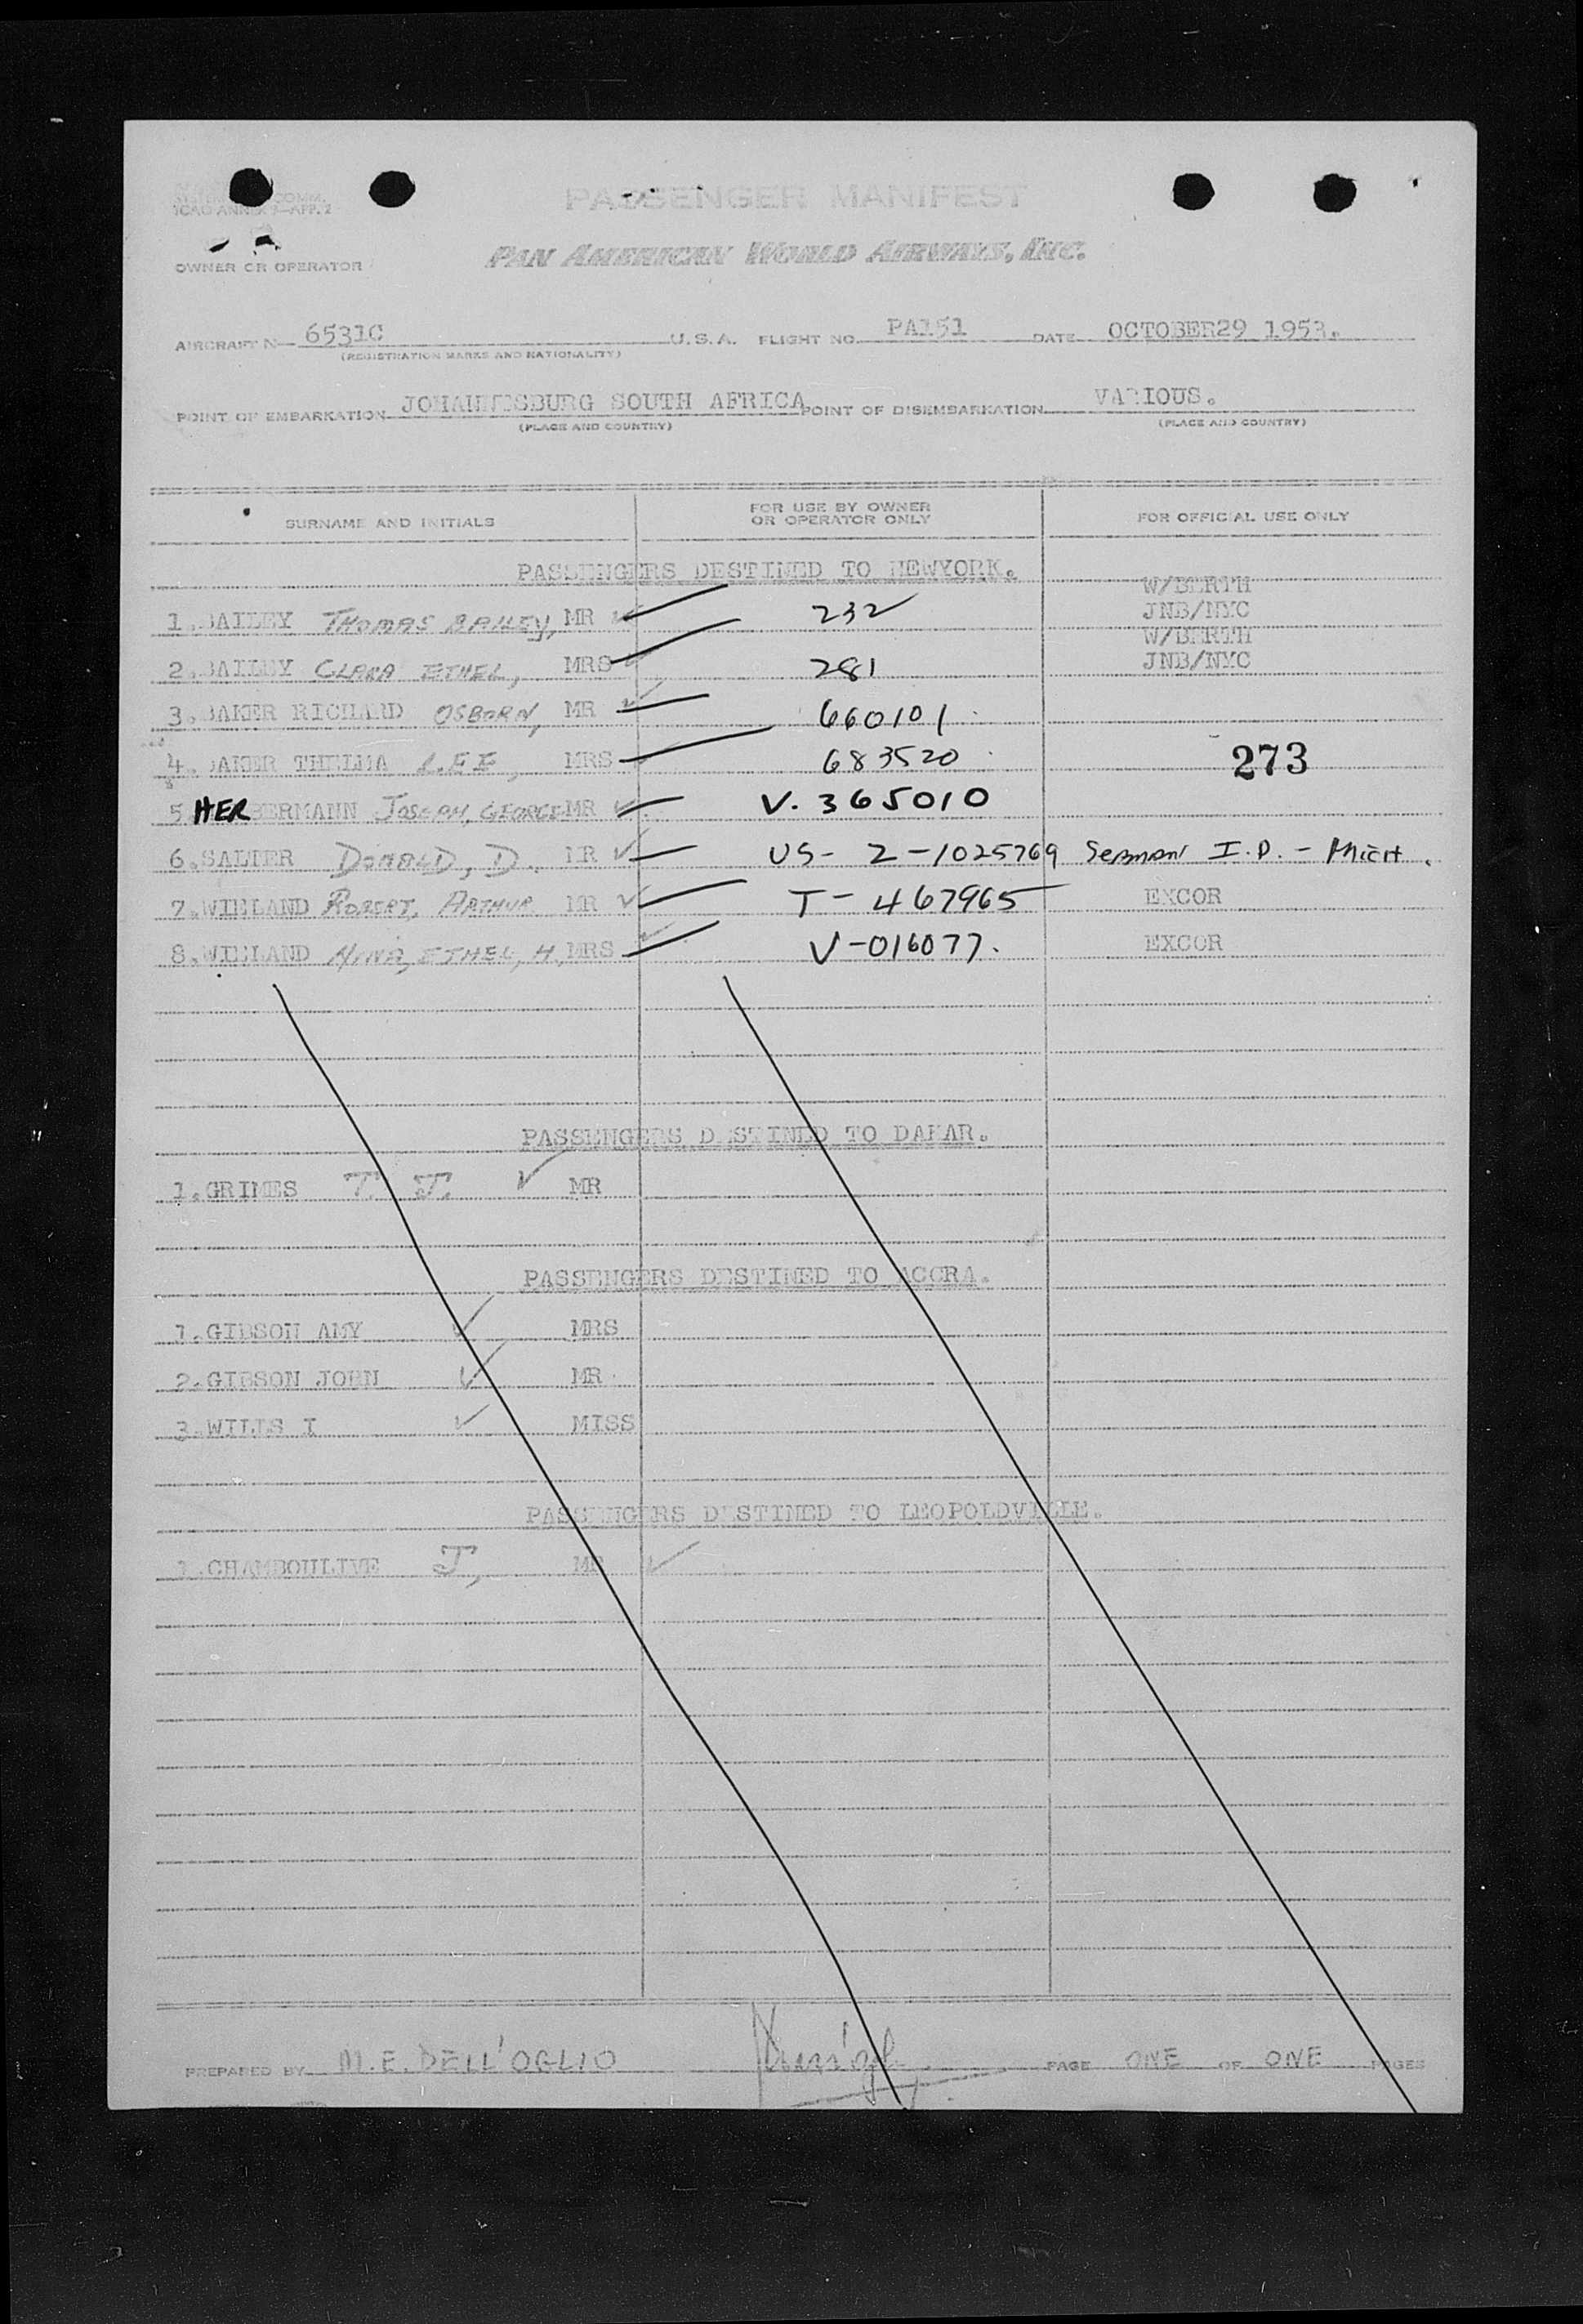 COMM.
ICAO ANNEX 9—APP. 2
PASSENGER MANIFEST
OWNER OR OPERATOR
PAN AMERICAN WORLD AIRWAYS, INC.
AIRCRAFT N 6531C U.S.A. FLIGHT NO. PA151 DATE OCTOBER29 1953.
(REGISTRATION MARKS AND NATIONALITY)
POINT OF EMBARKATION JOHANNESBURG SOUTH AFRICA POINT OF DISEMBARKATION VARIOUS.
(PLACE AND COUNTRY) (PLACE AND COUNTRY)
SURNAME AND INITIALS FOR USE BY OWNER OR OPERATOR ONLY FOR OFFICIAL USE ONLY
PASSENGERS DESTINED TO NEWYORK.
W/BERTH
1.BAILEY THOMAS BAILEY, MR 232 JNB/NYC
W/BERTH
2.BAILEY CLARA ETHEL, MRS 281 JNB/NYC
3.BAKER RICHARD OSBORN, MR 660101
4.BAKER THELMA LEE, MRS 683520 273
5.HERBERMANN JOSEPH, GEORGE MR V. 365010
6.SALIER DONALD, D. MR US- 2-1025769 Seaman I.D. - Mich.
7.WIELAND ROBERT, ARTHUR MR T-467965 EXCOR
8.WIELAND NINA, ETHEL, H. MRS V-016077. EXCOR
PASSENGERS DESTINED TO DAKAR.
1.GRIMES T. J. MR
PASSENGERS DESTINED TO ACCRA.
1.GIBSON AMY MRS
2.GIBSON JOHN MR
3.WILLS I MISS
PASSENGERS DESTINED TO LEOPOLDVILLE.
1.CHAMBOULIVE J, MR
PREPARED BY M.E. DELL'OGLIO PAGE ONE OF ONE PAGES